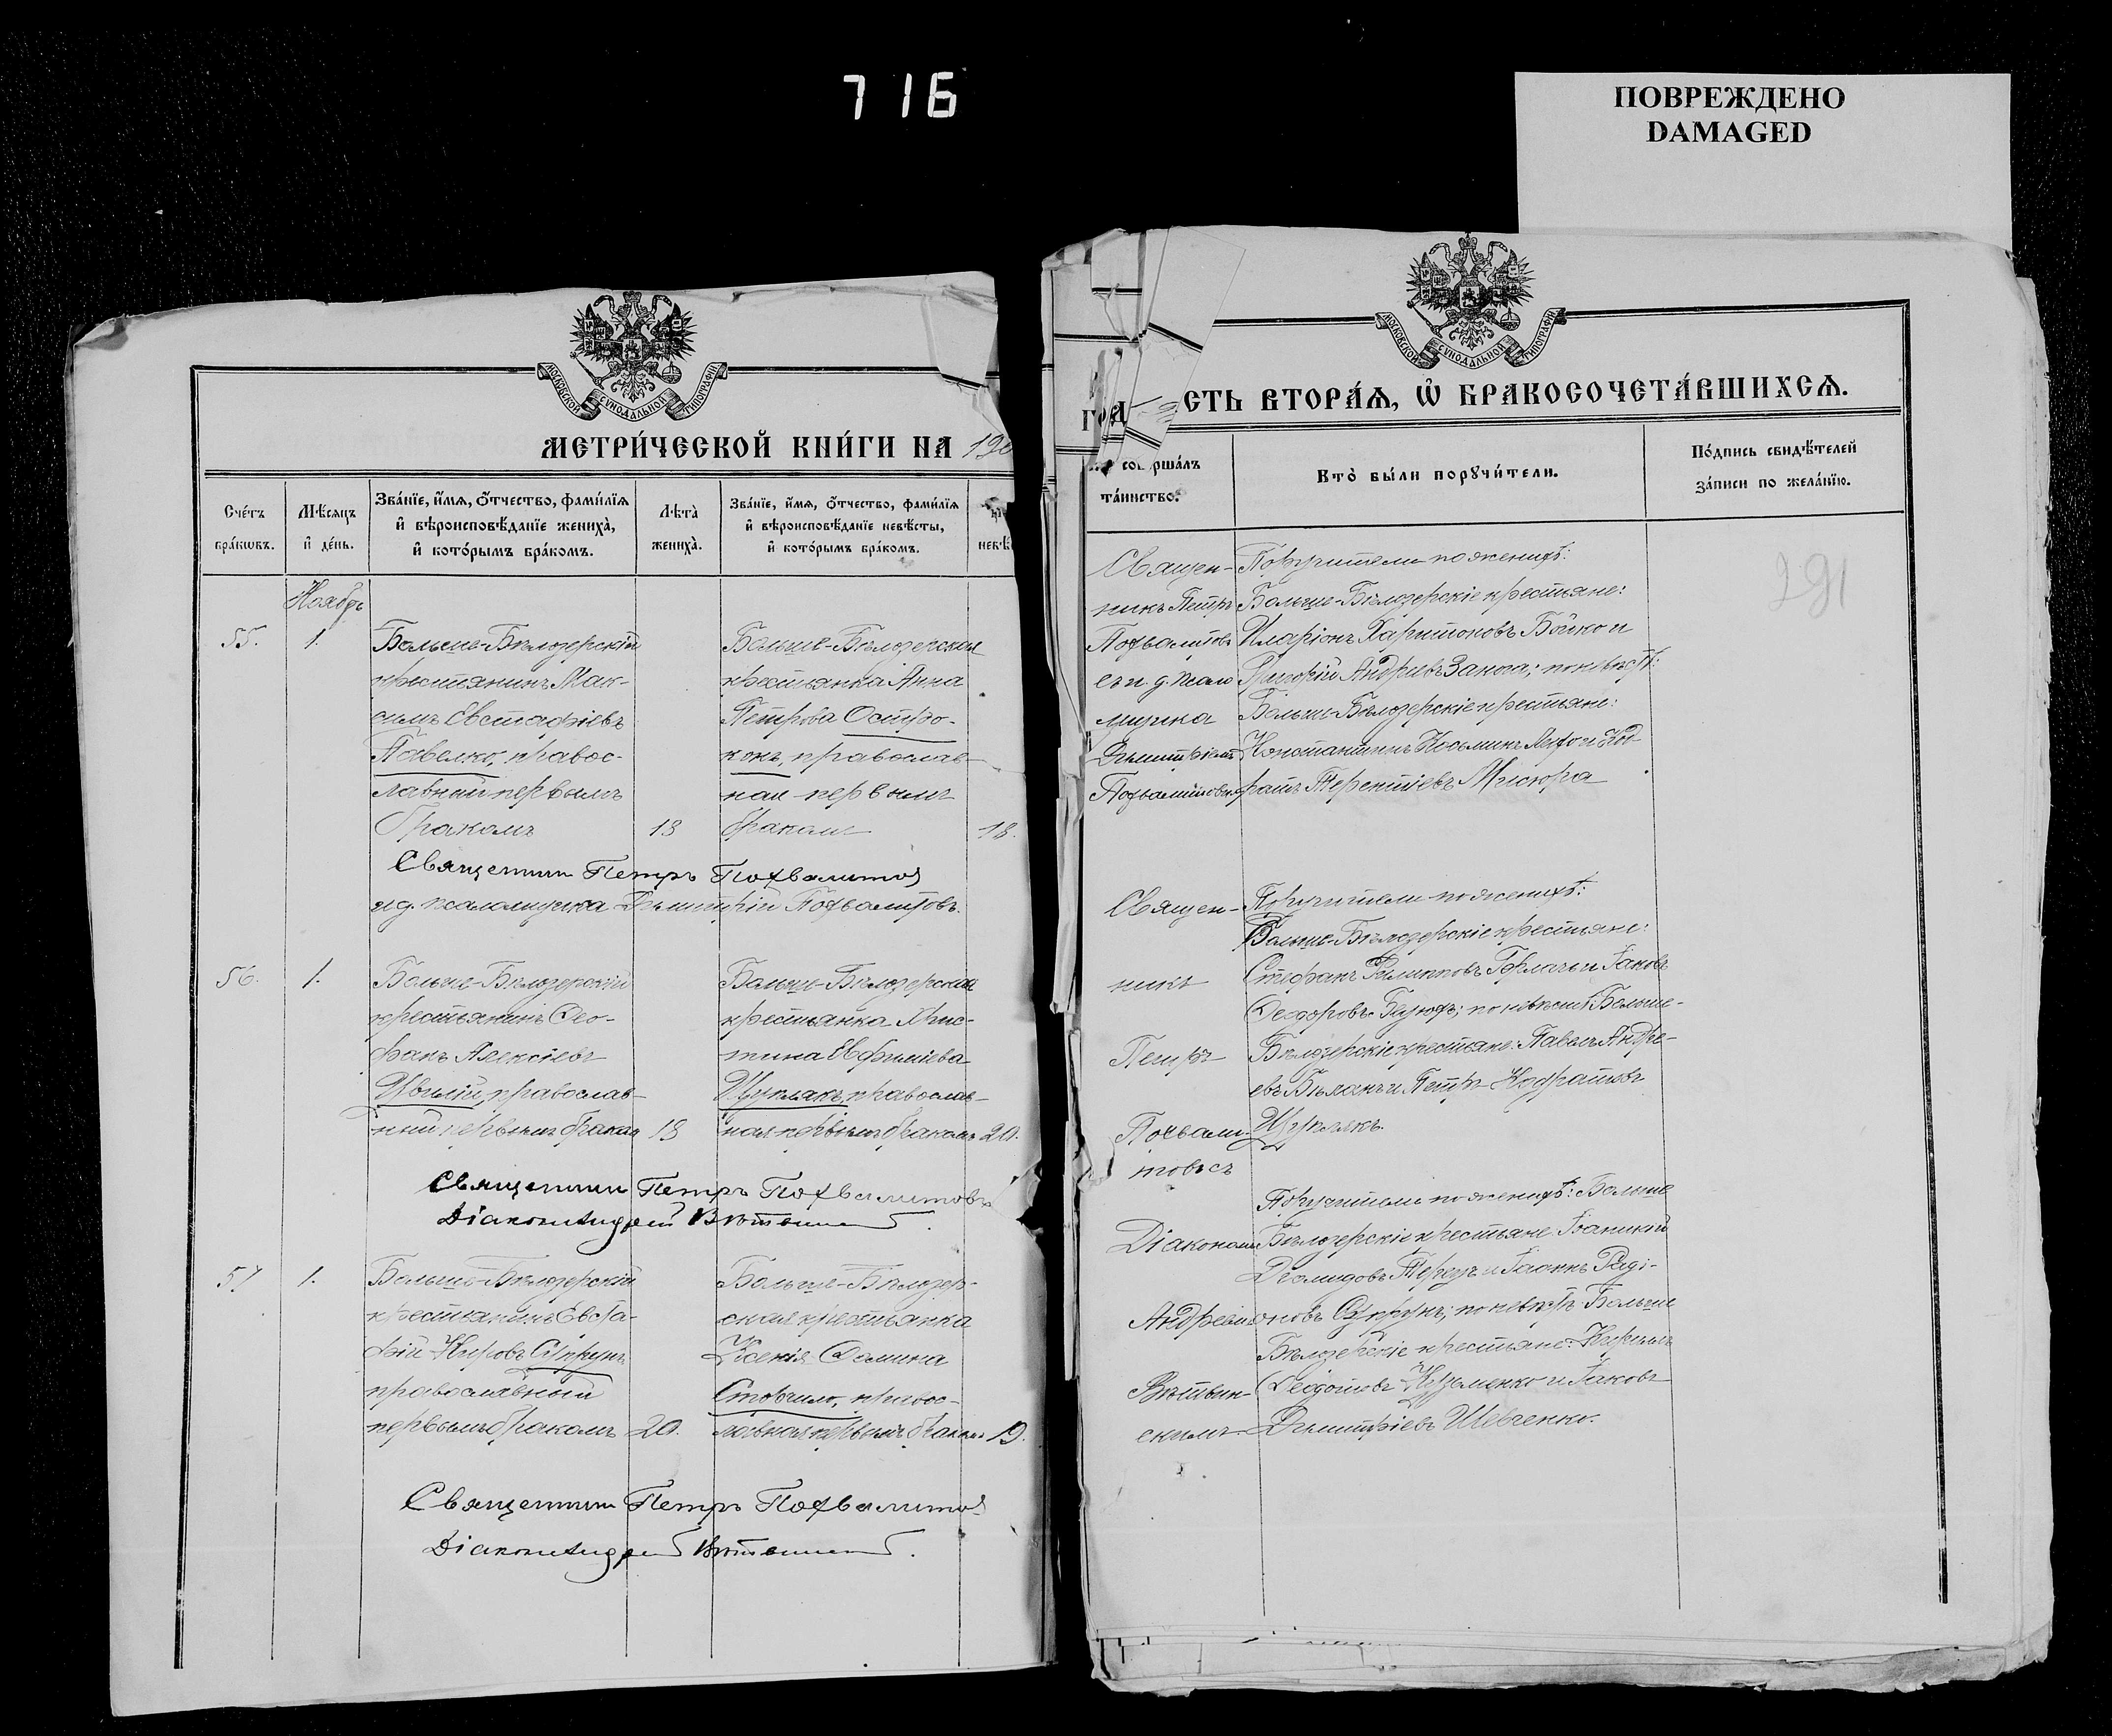 716
ПОВРЕЖДЕНО
DAMAGED
МОСКОВСКОЙ СѴНОДАЛЬНОЙ ТИПОГРАФІИ
МЕТРИ́ЧЕСКОЙ КНИ́ГИ НА 190
Сче́тъ бра́кѡвъ.
Мѣ́сяцъ и҆ де́нь.
Зва́нїе, и҆́мѧ, ѻ҆́тчество, фами́лїѧ и҆ вѣроисповѣ́данїе жениха̀, и҆ кото́рымъ бра́комъ.
Лѣ́та̀ жениха̀.
Зва́нїе, и҆́мѧ, ѻ҆́тчество, фами́лїѧ и҆ вѣроисповѣ́данїе невѣ́сты, и҆ кото́рымъ бра́комъ.
Ноябрь
55.
1.
Больше-Бѣлозерскій
крестьянинъ Мак-
симъ Евстафіевъ
Павелко, правос-
лавный первымъ
бракомъ
18
Больше-Бѣлозерская
крестьянка Анна
Петрова
православ-
ная первымъ
бракомъ
18.
Священникъ Петръ Похвалитов
и д. псаломщика Димитрій Похвалитовъ.
56.
1.
Больше-Бѣлозерскій
крестьянинъ Ѳео-
фанъ Алексіевъ
православ-
ный первымъ бракомъ
18
Больше-Бѣлозерская
крестьянка Хрис-
тина Евфиміева
Цуплякъ, православ-
ная первымъ бракомъ
20.
Священникъ Петръ Похвалитовъ
Діаконъ Андрей
57
1.
Больше-Бѣлозерскій
крестьянинъ Евста-
фій Кировъ Супрунъ
православный
первымъ бракомъ
20.
Больше-Бѣлозер-
ская крестьянка
Ксенія Ѳомина
правос-
лавная первымъ бракомъ
19.
Священникъ Петръ Похвалитов
Діаконъ Андрей
МОСКОВСКОЙ СѴНОДАЛЬНОЙ ТИПОГРАФІИ
СТЬ ВТОРА́Ѧ, Ѽ БРАКОСОЧЕТА́ВШИХСѦ.
та́инство.
Кто̀ бы́ли порꙋчи́тели.
По́дпись свидѣ́телей за́писи по жела́нїю.
291
Священ-
никъ Петръ
Похвалитовъ
съ и. д. псало
мщика
Димитріемъ
Похвалитовы
Поручители по женихѣ:
Больше-Бѣлозерскіе крестьяне:
Иларіонъ Харитоновъ Бойко и
Григорій Андреевъ по невѣстѣ:
Больше-Бѣлозерскіе крестьяне:
Константинъ Косьминъ и Код-
ратъ Терентіевъ Мисюра
Священ-
никъ
Петръ
Похвали-
товъ съ
Поручители по женихѣ:
Больше-Бѣлозерскіе крестьяне:
Стефанъ Филипповъ и Іаковъ
Ѳеодоровъ по невѣстѣ Больше-
Бѣлозерскіе крестьяне: Павелъ Андре-
евъ и Петръ Кодратовъ
Цуплякъ.
Діакономъ
Андреемъ
Поручители по женихѣ: Больше
Бѣлозерскіе крестьяне Іоаникій
Діомидовъ и Іоаннъ Роді-
оновъ Супрунъ; по невѣстѣ: Больше
Бѣлозерскіе крестьяне:
Ѳеодотовъ Кузьменко и Іаковъ
Димитріевъ Шевченко.